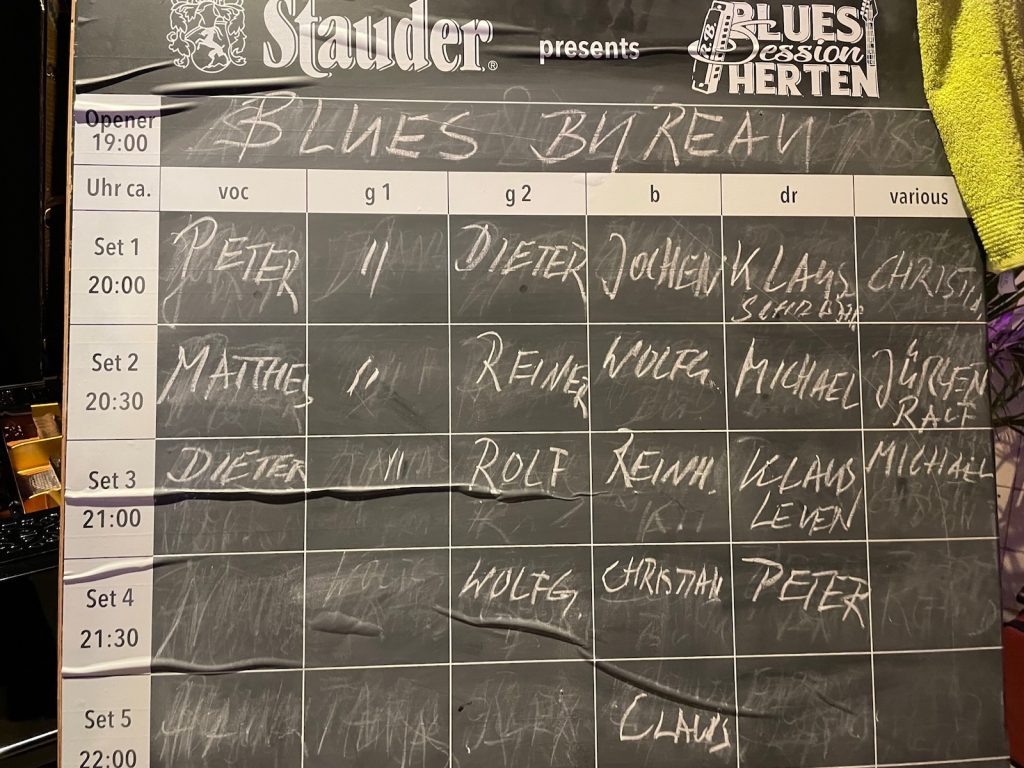 Stauder® presents BLUES Session HERTEN
Opener 19:00 BLUES BUREAU
Uhr ca. voc g 1 g 2 b dr various
Set 1 20:00 PETER " DIETER JOCHEN KLAUS CHRISTIA
Set 2 20:30 MATTHES " REINER WOLFG. MICHAEL JÜRGEN RALF
Set 3 21:00 DIETER " ROLF REINH. KLAUS LEVEN MICHAEL
Set 4 21:30 WOLFG. CHRISTIAN PETER
Set 5 22:00 CLAUS